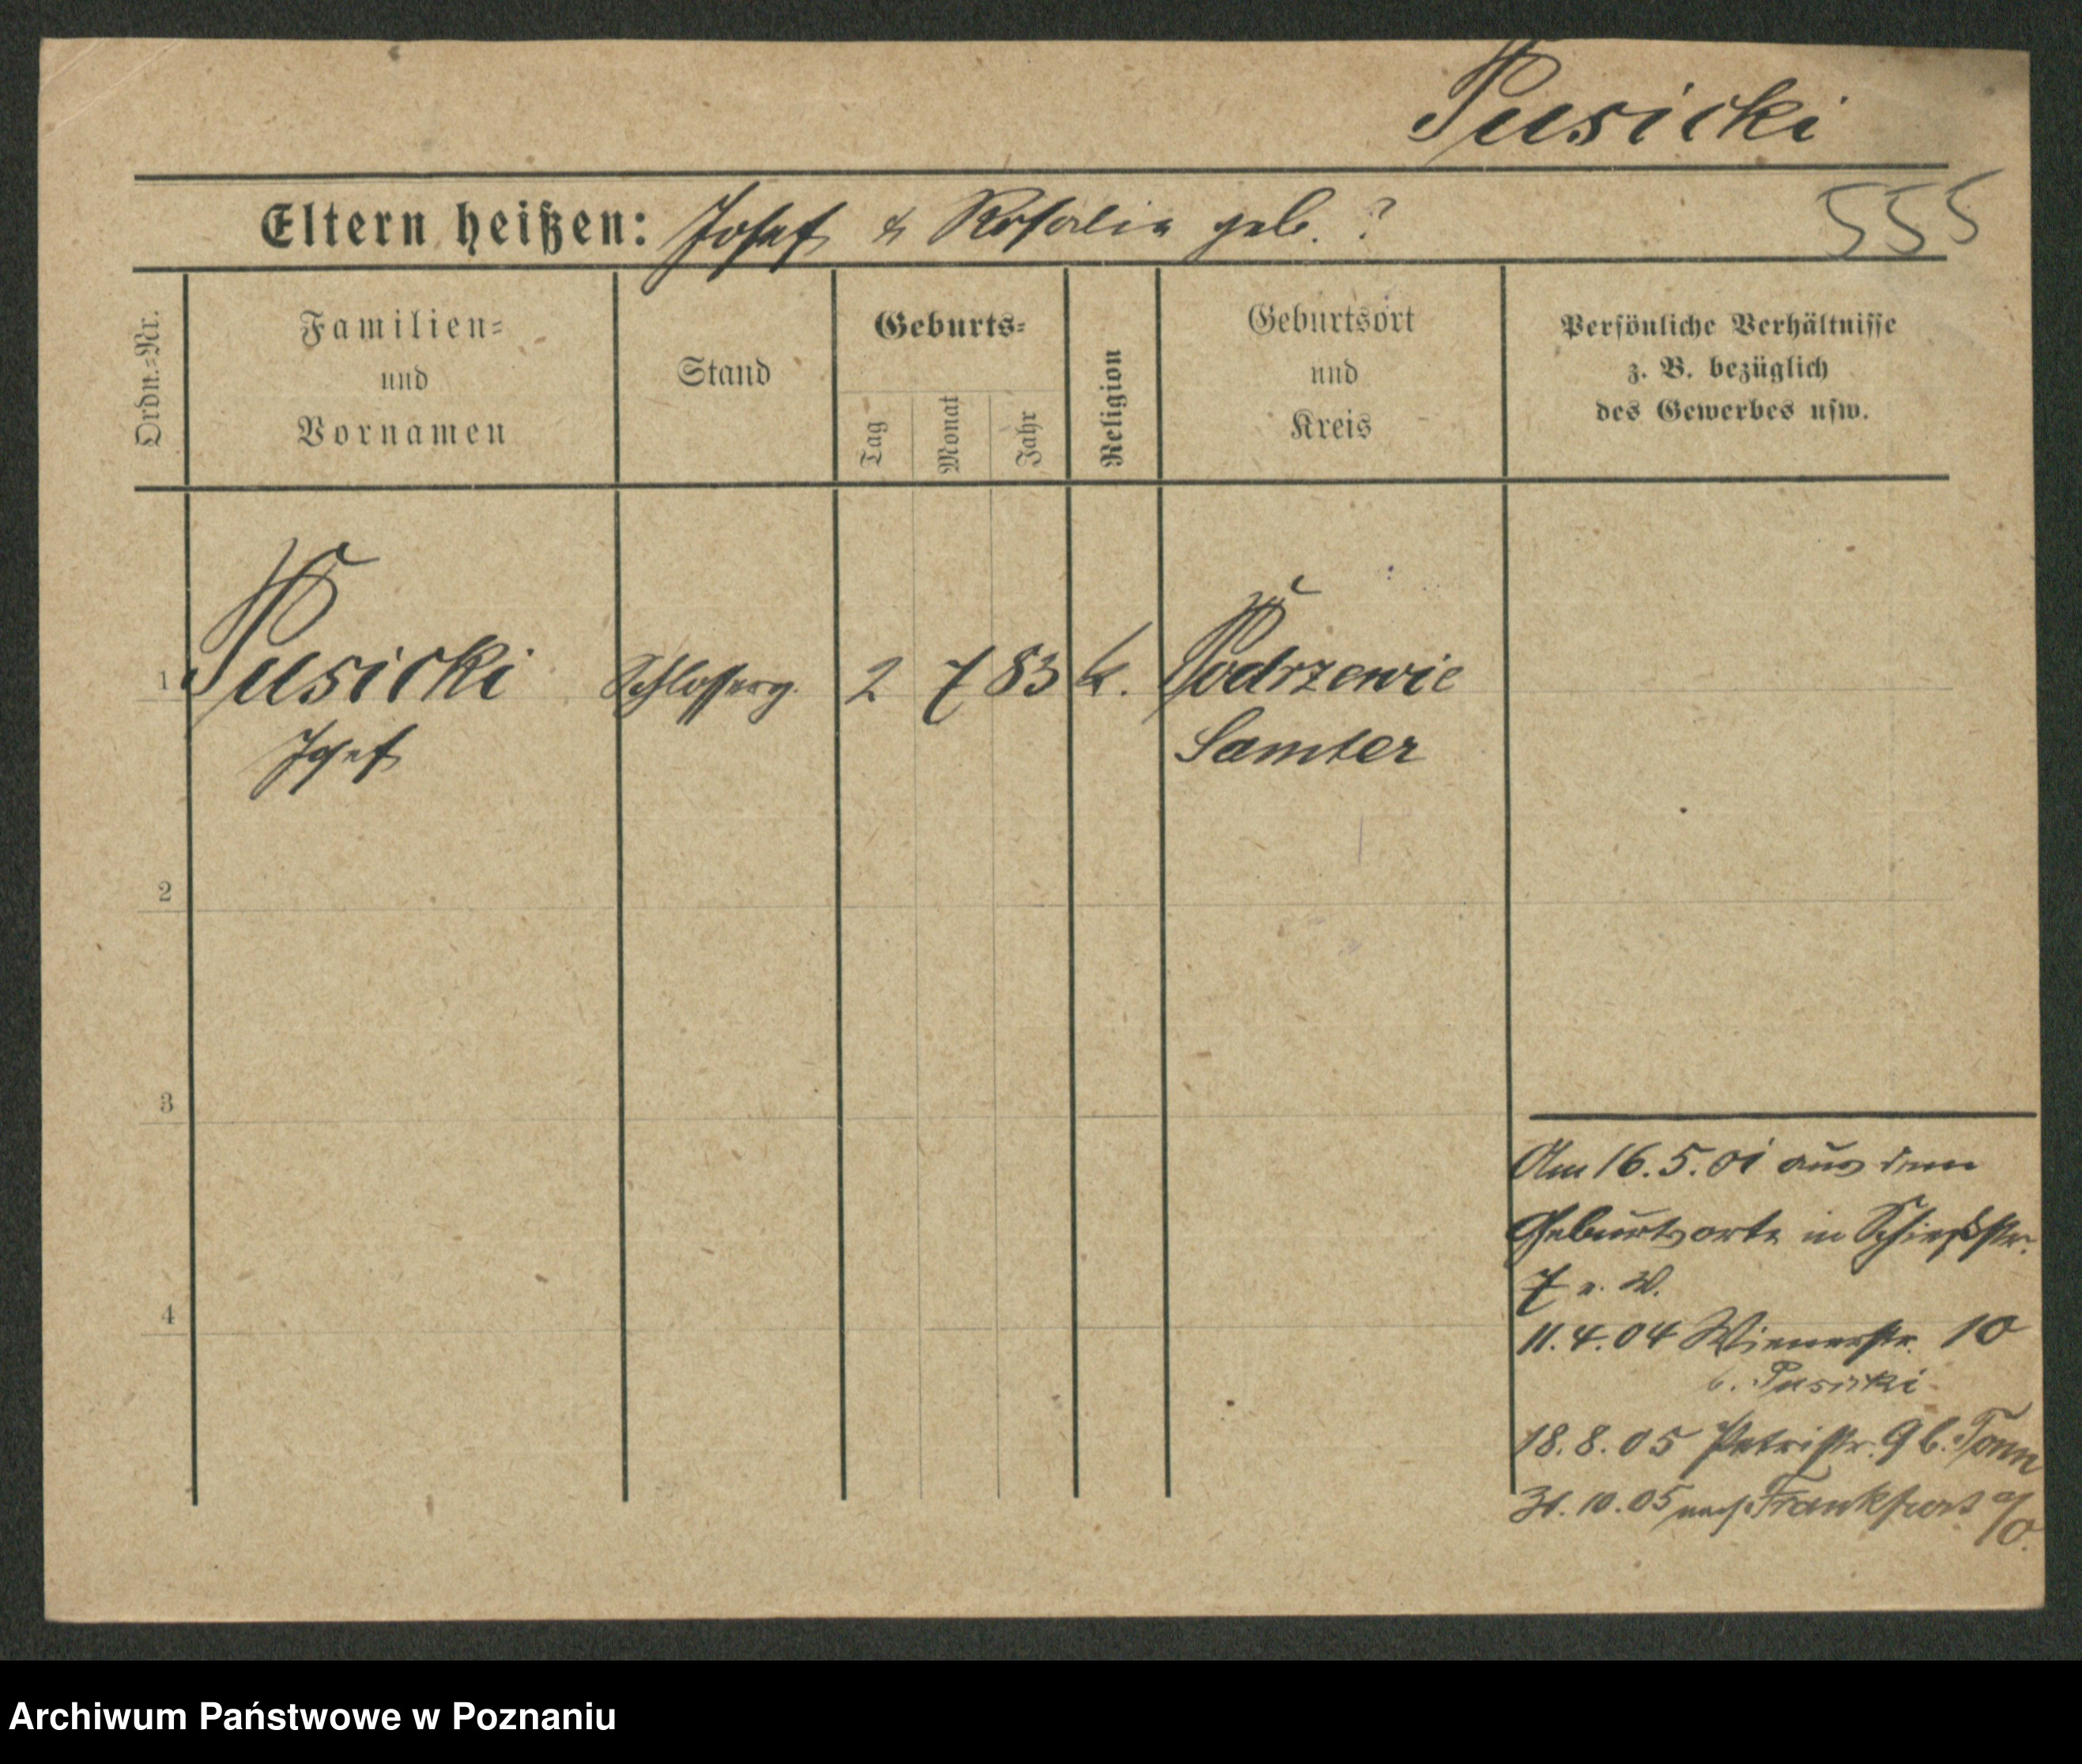 Pusicki
Eltern heißen: Josef & Rosalia geb. ?
555
Ordn.=Nr.
Familien=
und
Vornamen
Stand
Geburts=
Tag
Monat
Jahr
Religion
Geburtsort
und
Kreis
Persönliche Verhältnisse
z. B. bezüglich
des Gewerbes usw.
1 Pusicki Schlosserg. 2 7 83 k. Podrzewie
Josef Samter
2
3
4
Am 16.5.01 aus dem
Geburtsorte in Schießstr.
7 z. W.
11.4.04 Wienerstr. 10
b. Pusicki
18.8.05 Petristr. 9 b. Tonn
31.10.05 nach Frankfurt a/O.
Archiwum Państwowe w Poznaniu